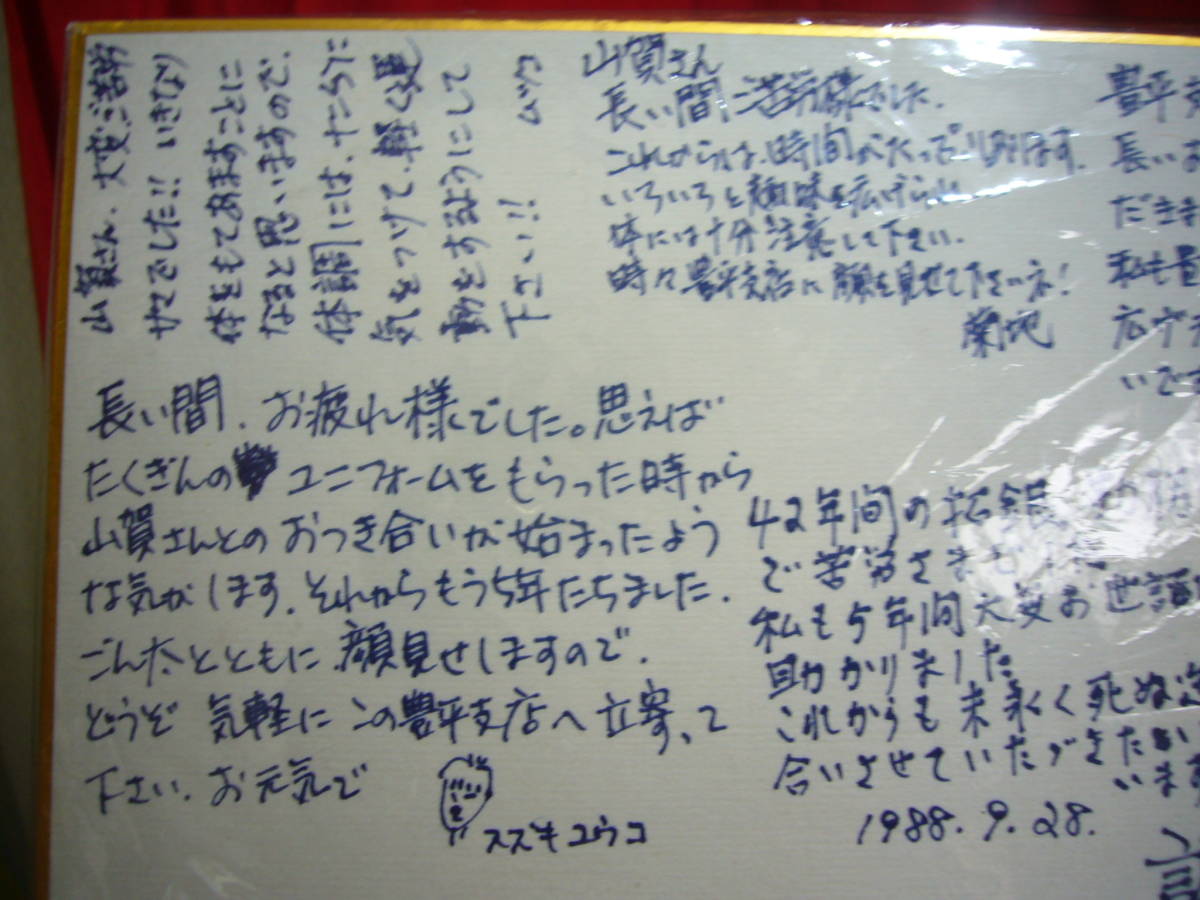 山賀さん、大変ご苦労
サマでした!! いきなり
体をもてあますことに
なると思いますので、
体調には、十二分に
気をつけて、軽く運
動をするようにして
下さい!! ムツコ
山賀さん
長い間ご苦労様でした.
これからは、時間がたっぷりあります.
いろいろと趣味を広げられ
体には十分注意して下さい.
時々豊平支店に顔を見せて下さいネ!
菊地
豊平支
長いお
だきま
私も豊
広げ
いです
長い間、お疲れ様でした。思えば
たくぎんの ユニフォームをもらった時から
山賀さんとのおつき合いが始まったよう
な気がします、それからもう5年たちました.
ごん太とともに顔見せしますので、
どうぞ 気軽にこの豊平支店へ立寄って
下さい、お元気で
スズキユウコ
42年間の拓銀
ご苦労さま
私も5年間大変お世話
助かりました
これからも末永く死ぬ迄
合いさせていただきたい
います
1988.9.28.